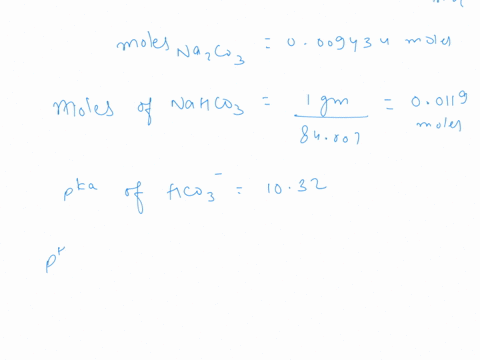 moles Na2CO3 = 0.009434 moles
Moles of NaHCO3 = 1 gm / 84.007 = 0.0119 moles
pka of HCO3- = 10.32
p